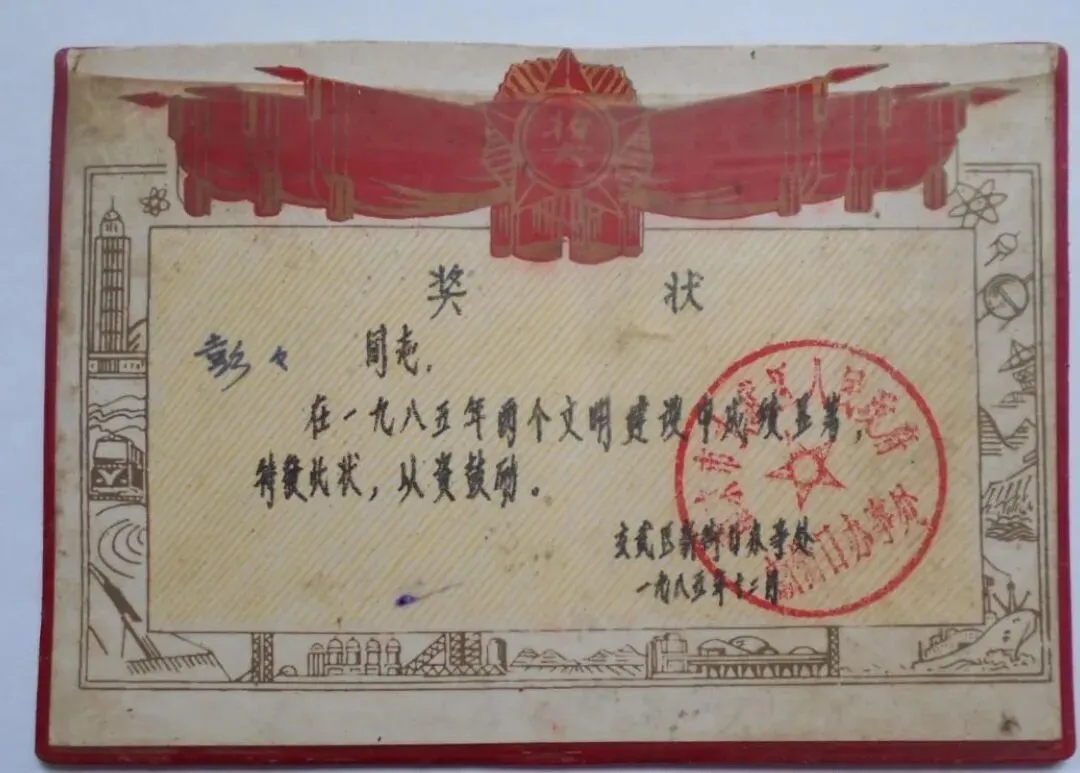 奖 状
彭々 同志,
在一九八五年两个文明建设中成绩显著,
特发此状,以资鼓励。
玄武区新街口办事处
一九八五年十二月
南京市玄武区人民政府
新街口办事处